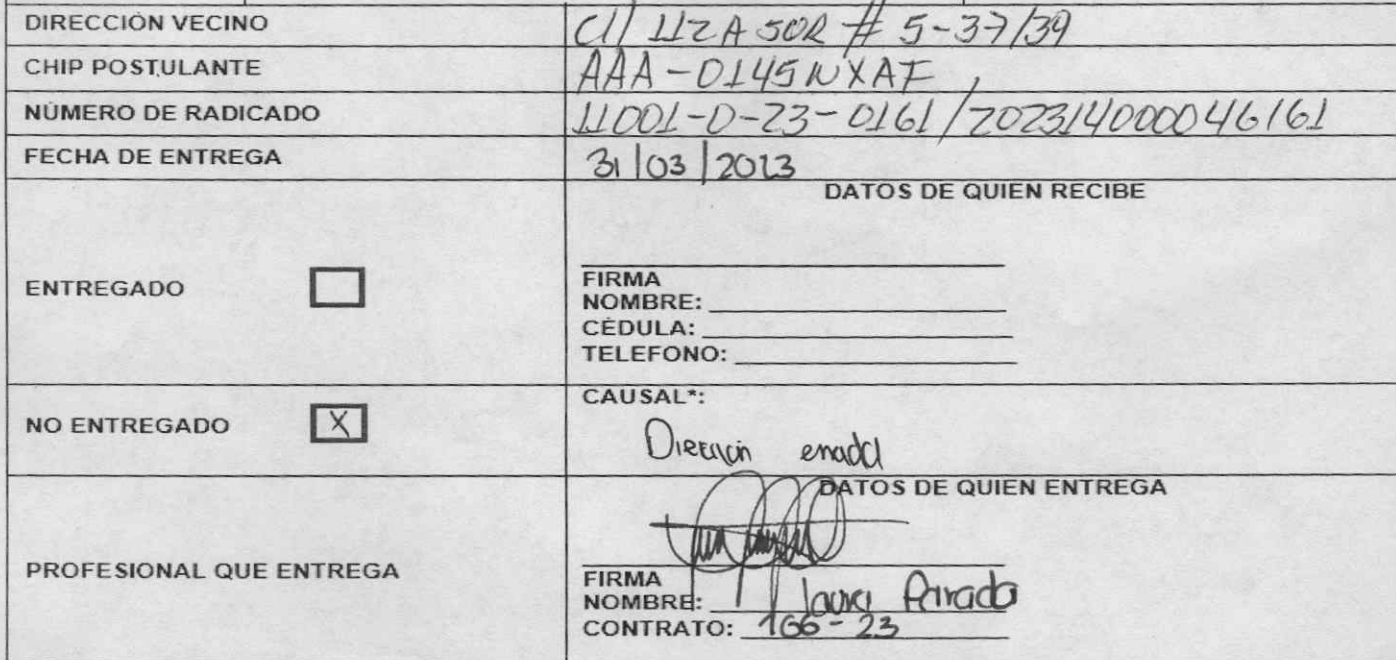 DIRECCIÓN VECINO Cll 112A SUR # 5-37/39
CHIP POSTULANTE AAA-0145NXAF
NÚMERO DE RADICADO 11001-0-23-0161/202314000046161
FECHA DE ENTREGA 31/03/2023
DATOS DE QUIEN RECIBE
ENTREGADO
FIRMA
NOMBRE:
CÉDULA:
TELEFONO:
NO ENTREGADO X
CAUSAL*:
Dirección errada
DATOS DE QUIEN ENTREGA
PROFESIONAL QUE ENTREGA
FIRMA
NOMBRE: Laura Parada
CONTRATO: 166-23